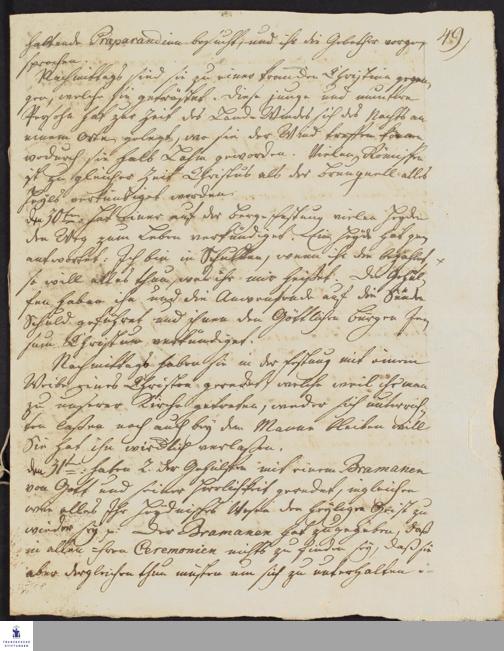 49
haltende Praparandinn besucht, und ihr die Gebether vorge,,
sprochen.
Nachmittags sind sie zu einer krancken Christin gegan,,
gen, welche sie getröstet. Diese junge und muntere
Person hat zur Zeit des Land Windes sich des Nachts an
einem Orte gelegt, wo sie der Wind treffen können
wodurch sie halb Lahm geworden. Vielen Römischen
ist zu gleicher Zeit Christus als der brunquell alles
Heyls verkündiget worden.
den 30ten hat Einer auf der bergs festung vielen Heyden
den Weg zum Leben verkündiget. Ein Heyde hat ge,,
antwortet: Ich bin in Schulden, wenn ihr die bezahlet
so will alles thun, was ihr mir heißet. Die Gehül,,
fen haben ihn und die Anwesende auf die Sünden
Schuld geführet und ihnen den Göttlichen Bürgen Je,,
sum Christum verkündiget.
Nachmittags haben sie in der Festung mit einem
Weibe eines Christen geredet, welche weil ihr man
zu unserer Kirche getreten, weder sich unterrich,,
ten laßen noch auch bey dem Manne bleiben will
Sie hat ihn wircklich verlaßen.
den 31ten haben 2. der Gehülfen mit einem Bramanen
von Gott und seiner Herrlichkeit geredet, ingleichen
wie alles Ihr Heydnisches Wesen den heyligen Gott zu
wieder sey. Der Bramanen hat zugegeben, daß
in allen ihren Ceremonien nichts zu finden sey, daß sie
aber dergleichen thun müsten um sich zu unterhalten
FRANCKESCHE
STIFTUNGEN